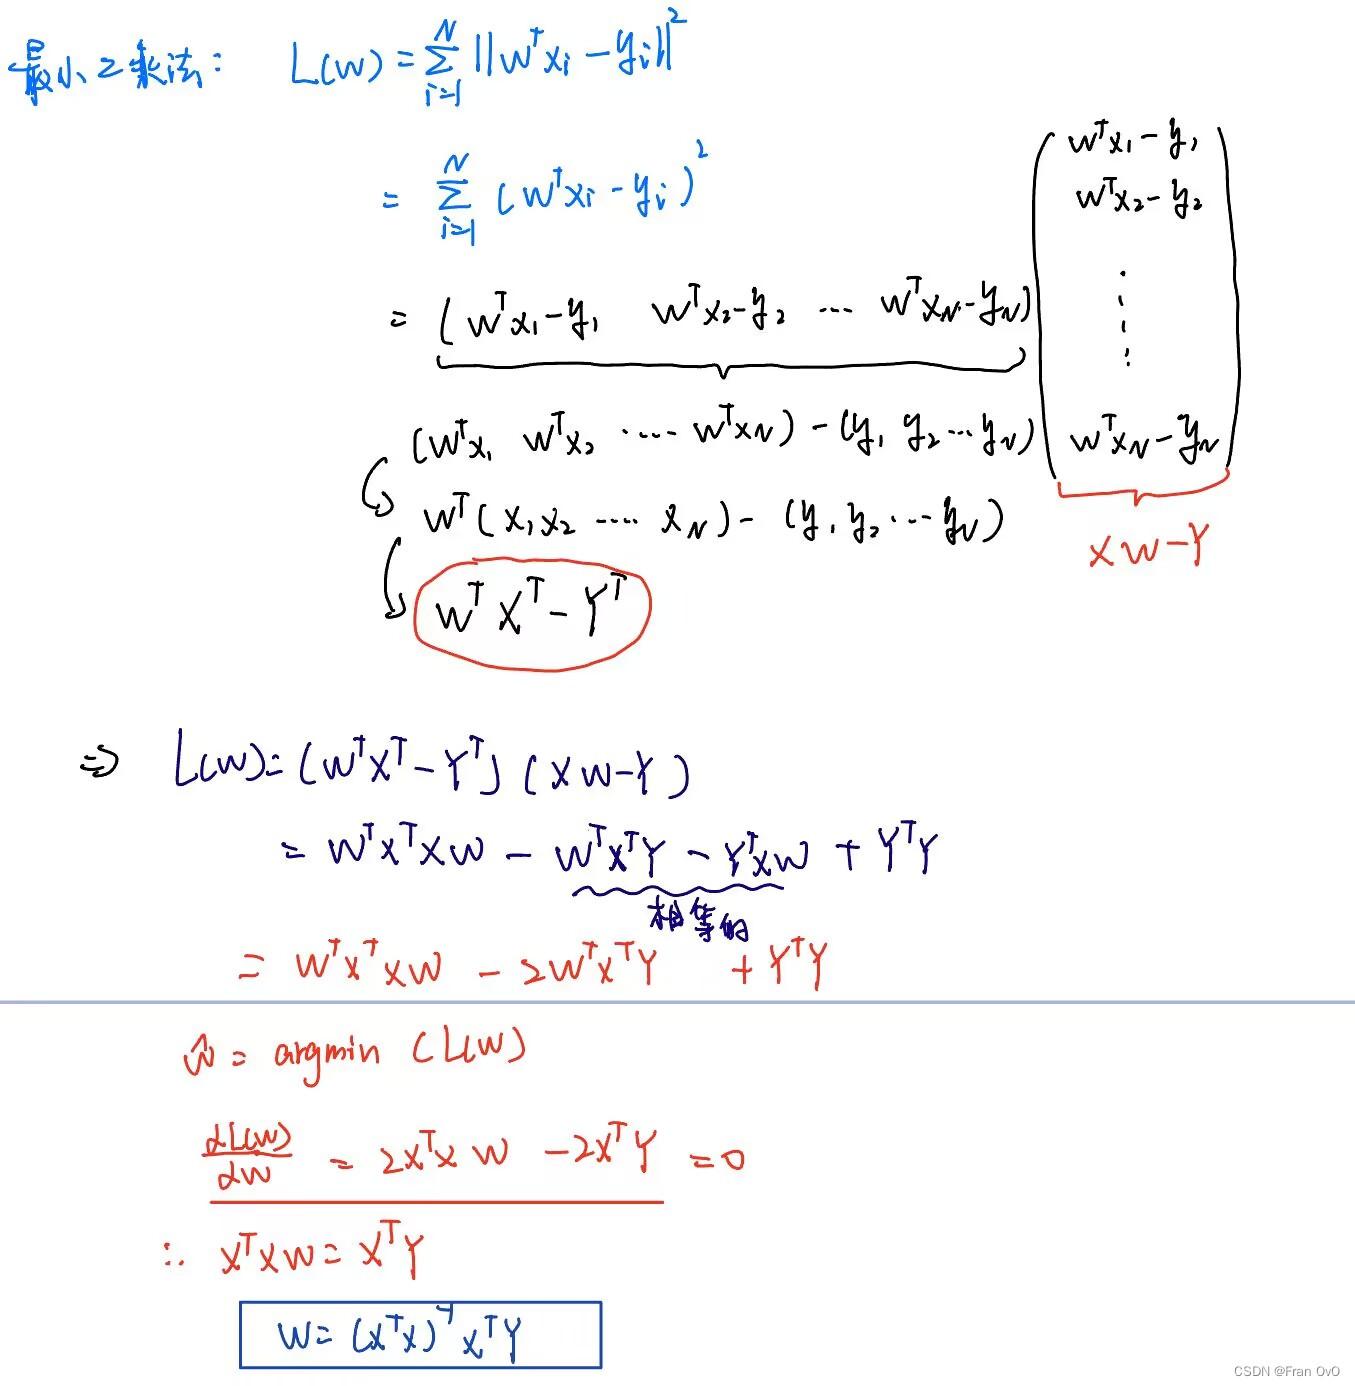 最小二乘法: L(W) = ∑_{i=1}^{N} ||W^T x_i - y_i||^2
= ∑_{i=1}^{N} (W^T x_i - y_i)^2
= (W^T x_1 - y_1 W^T x_2 - y_2 ... W^T x_N - y_N)
W^T x_1 - y_1
W^T x_2 - y_2
⋮
W^T x_N - y_N
XW - Y
(W^T x_1 W^T x_2 ..... W^T x_N) - (y_1 y_2 ... y_N)
W^T (x_1 x_2 ..... x_N) - (y_1 y_2 ... y_N)
W^T X^T - Y^T
⇒ L(W) = (W^T X^T - Y^T) (XW - Y)
= W^T X^T X W - W^T X^T Y - Y^T X W + Y^T Y
相等的
= W^T X^T X W - 2W^T X^T Y + Y^T Y
Ŵ = argmin (L(W)
dL(W)/dW = 2X^T X W - 2X^T Y = 0
∴ X^T X W = X^T Y
W = (X^T X)^{-1} X^T Y
CSDN @Fran OvO